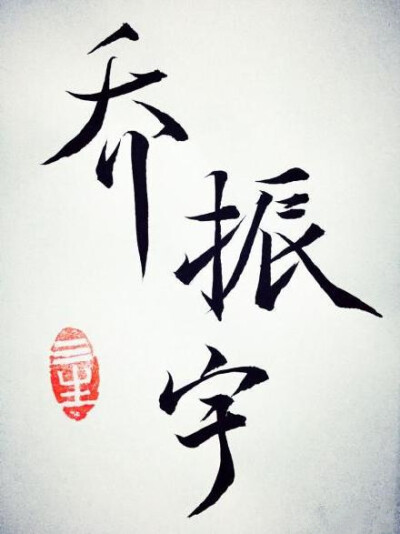 乔振宇